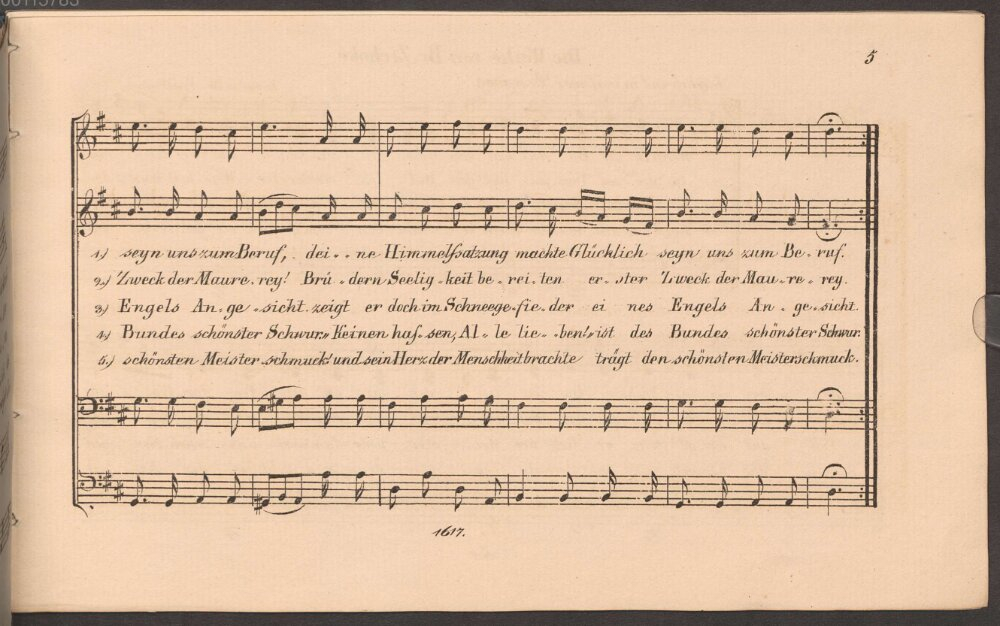 00115783
5
1.) seyn uns zum Beruf, dei - - ne Himmelssatzung machte Glücklich seyn uns zum Be - ruf.
2.) Zweck der Maure - rey! Brü - dern Seelig - keit be - rei - ten er - ster Zweck der Mau - re - rey.
3.) Engels An - ge - sicht. zeigt er doch im Schneege - fie - der ei nes Engels An - ge - sicht.
4.) Bundes schönster Schwur. Keinen has - sen, Al - le lie - ben! ist des Bundes schönster Schwur.
5.) schönsten Meister - schmuck! und sein Herz der Menschheit brachte trägt den schönsten Meisterschmuck.
1617.